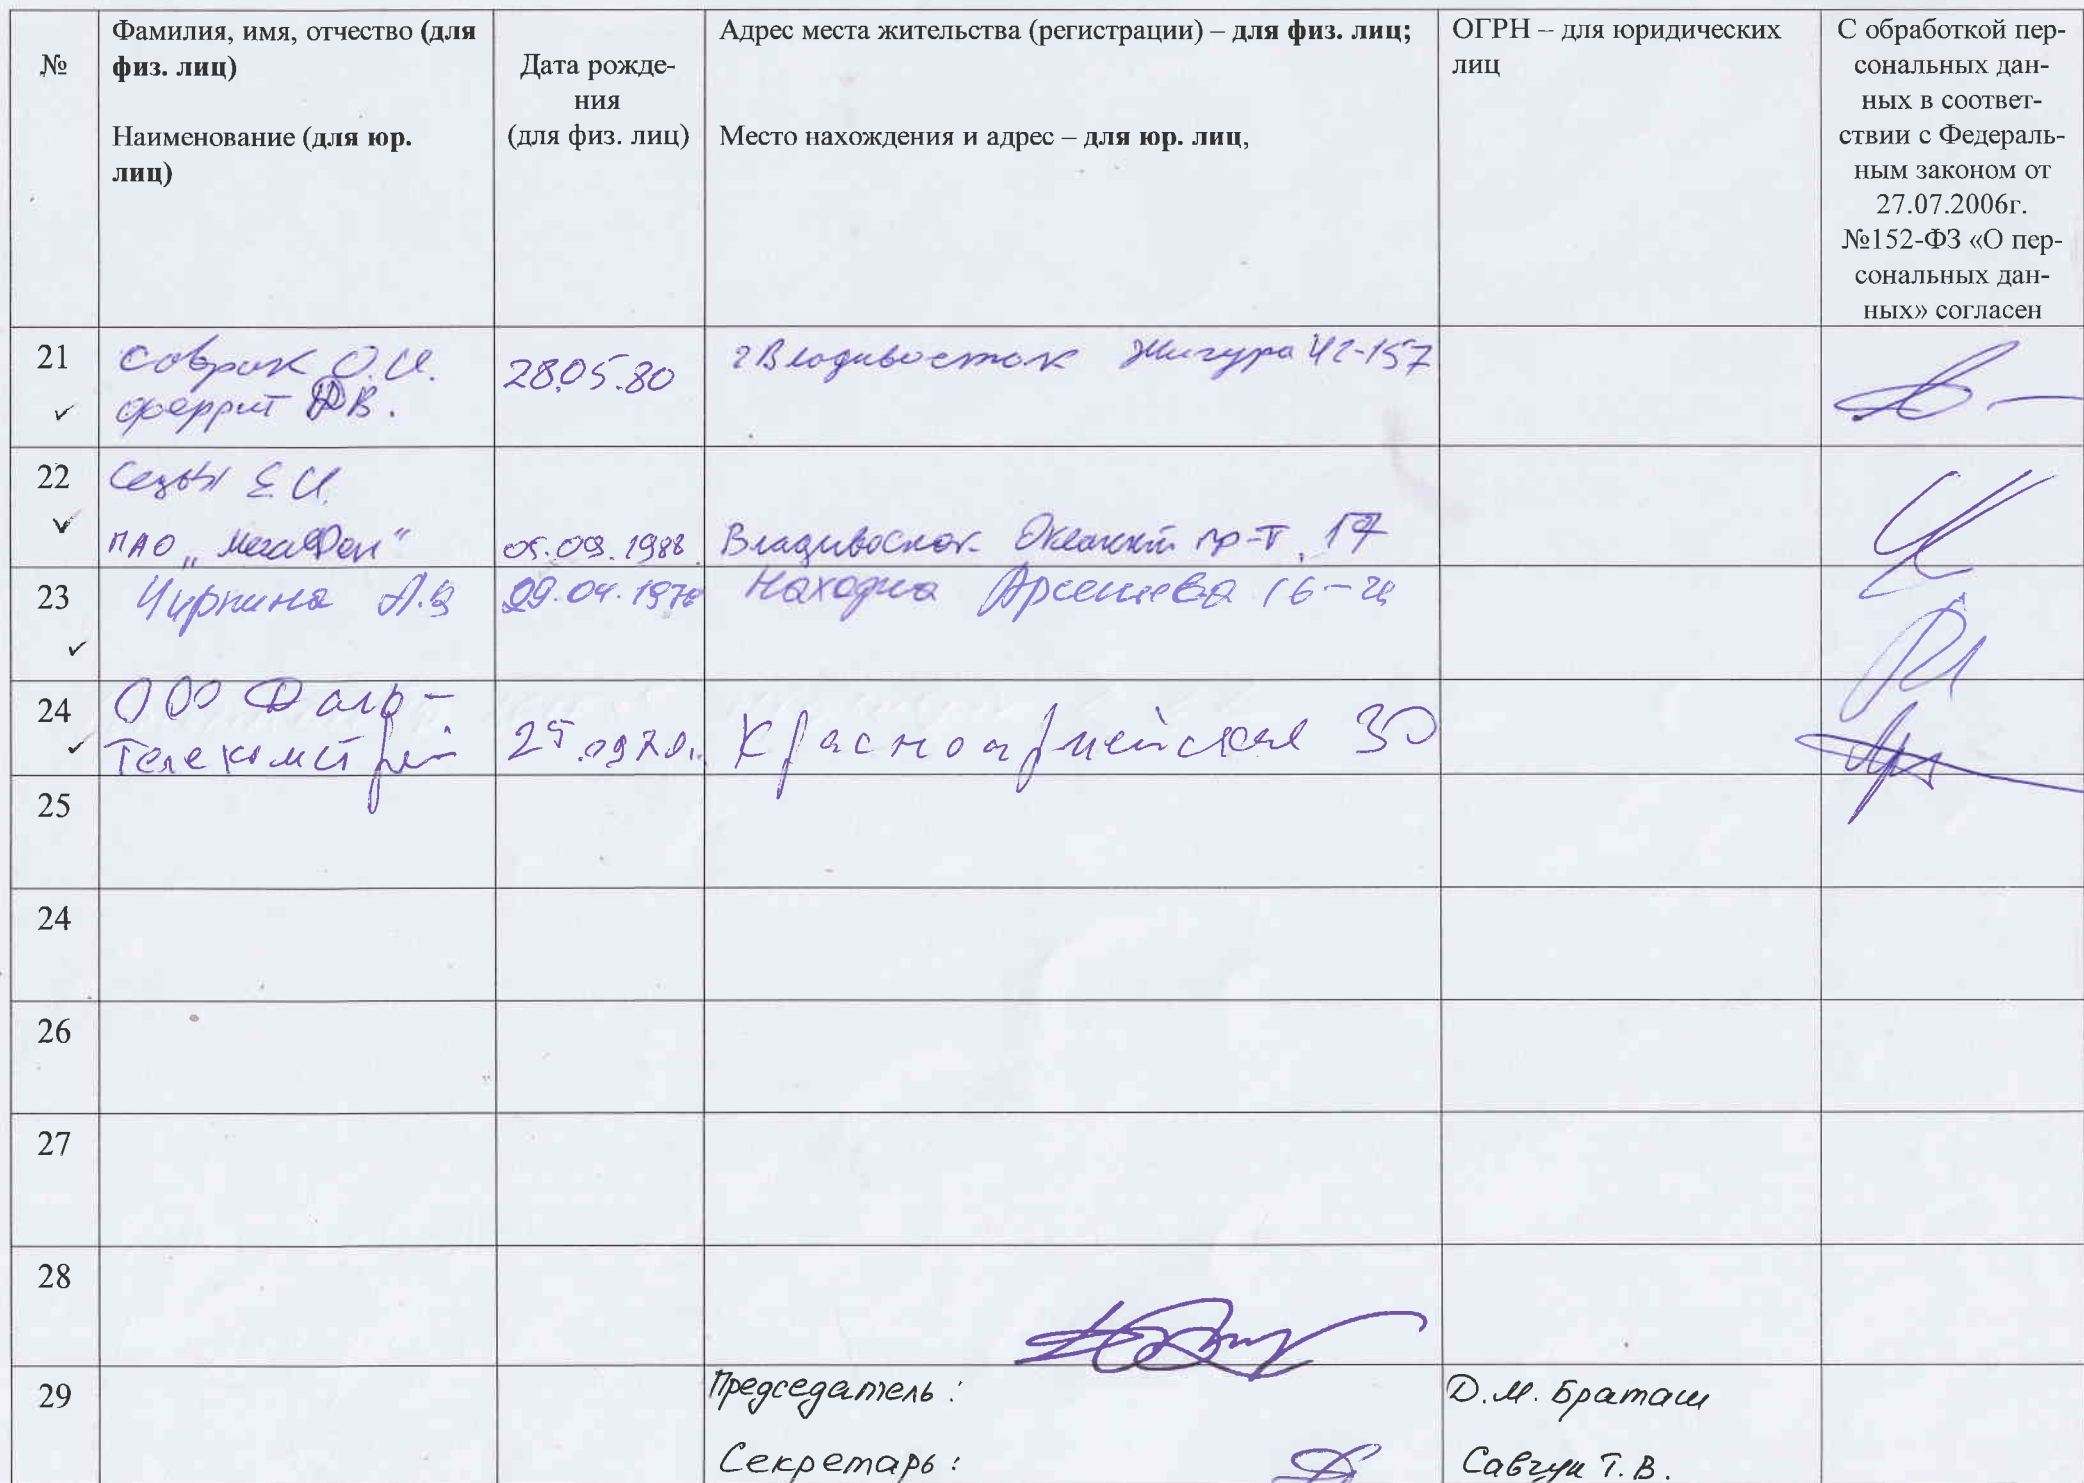 №
Фамилия, имя, отчество (для
физ. лиц)
Наименование (для юр.
лиц)
Дата рожде-
ния
(для физ. лиц)
Адрес места жительства (регистрации) – для физ. лиц;
Место нахождения и адрес – для юр. лиц,
ОГРН – для юридических
лиц
С обработкой пер-
сональных дан-
ных в соответ-
ствии с Федераль-
ным законом от
27.07.2006г.
№152-ФЗ «О пер-
сональных дан-
ных» согласен
21
О.И.
феррит В.
28.05.80
г Владивосток Жигура 42-157
22
Е И.
ПАО „МегаФон“
05.09.1988
Владивосток Океанский пр-т, 17
23
А.В
29.04.197
Находка Арсеньева 16-
24
ООО Даль-
Телекомстрой
25.
Красноармейская 30
25
24
26
27
28
29
Председатель:
Д.М. Браташ
Секретарь:
Савчук Т.В.